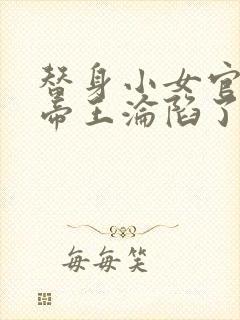 替身小女官
帝王淪陷了
每每笑